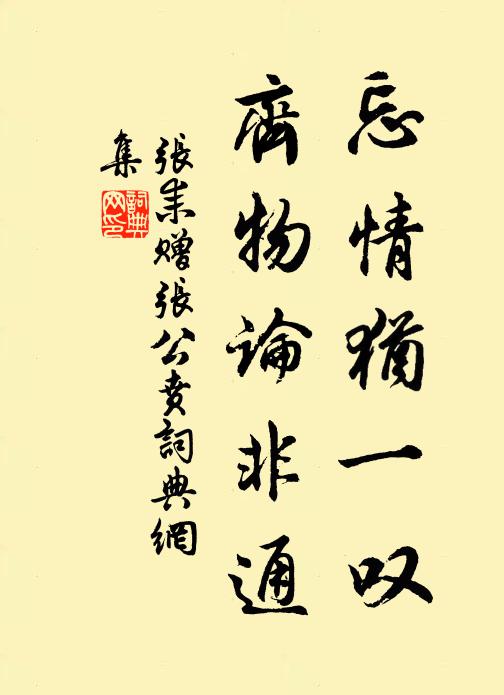 忘情猶一叹
齊物論非通
張耒贈張公賁詞典網
集
詞典網印